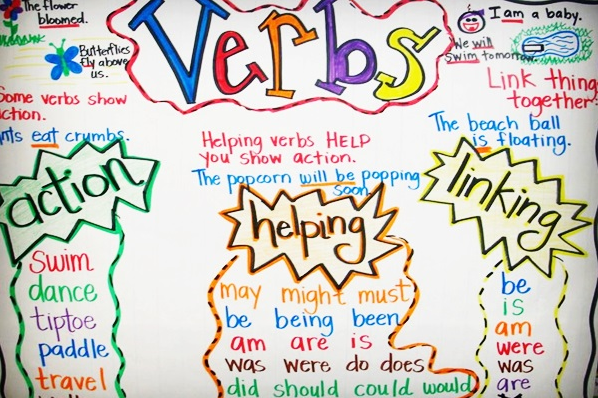 The flower
bloomed.
Butterflies
fly above
us.
Verbs
I am a baby.
We will
swim tomorrow
Some verbs show
action.
eat crumbs.
Helping verbs HELP
you show action.
The popcorn will be popping
soon
Link things
together
The beach ball
is floating.
action
swim
dance
tiptoe
paddle
travel
helping
may might must
be being been
am are is
was were do does
did should could would
linking
be
is
am
were
was
are